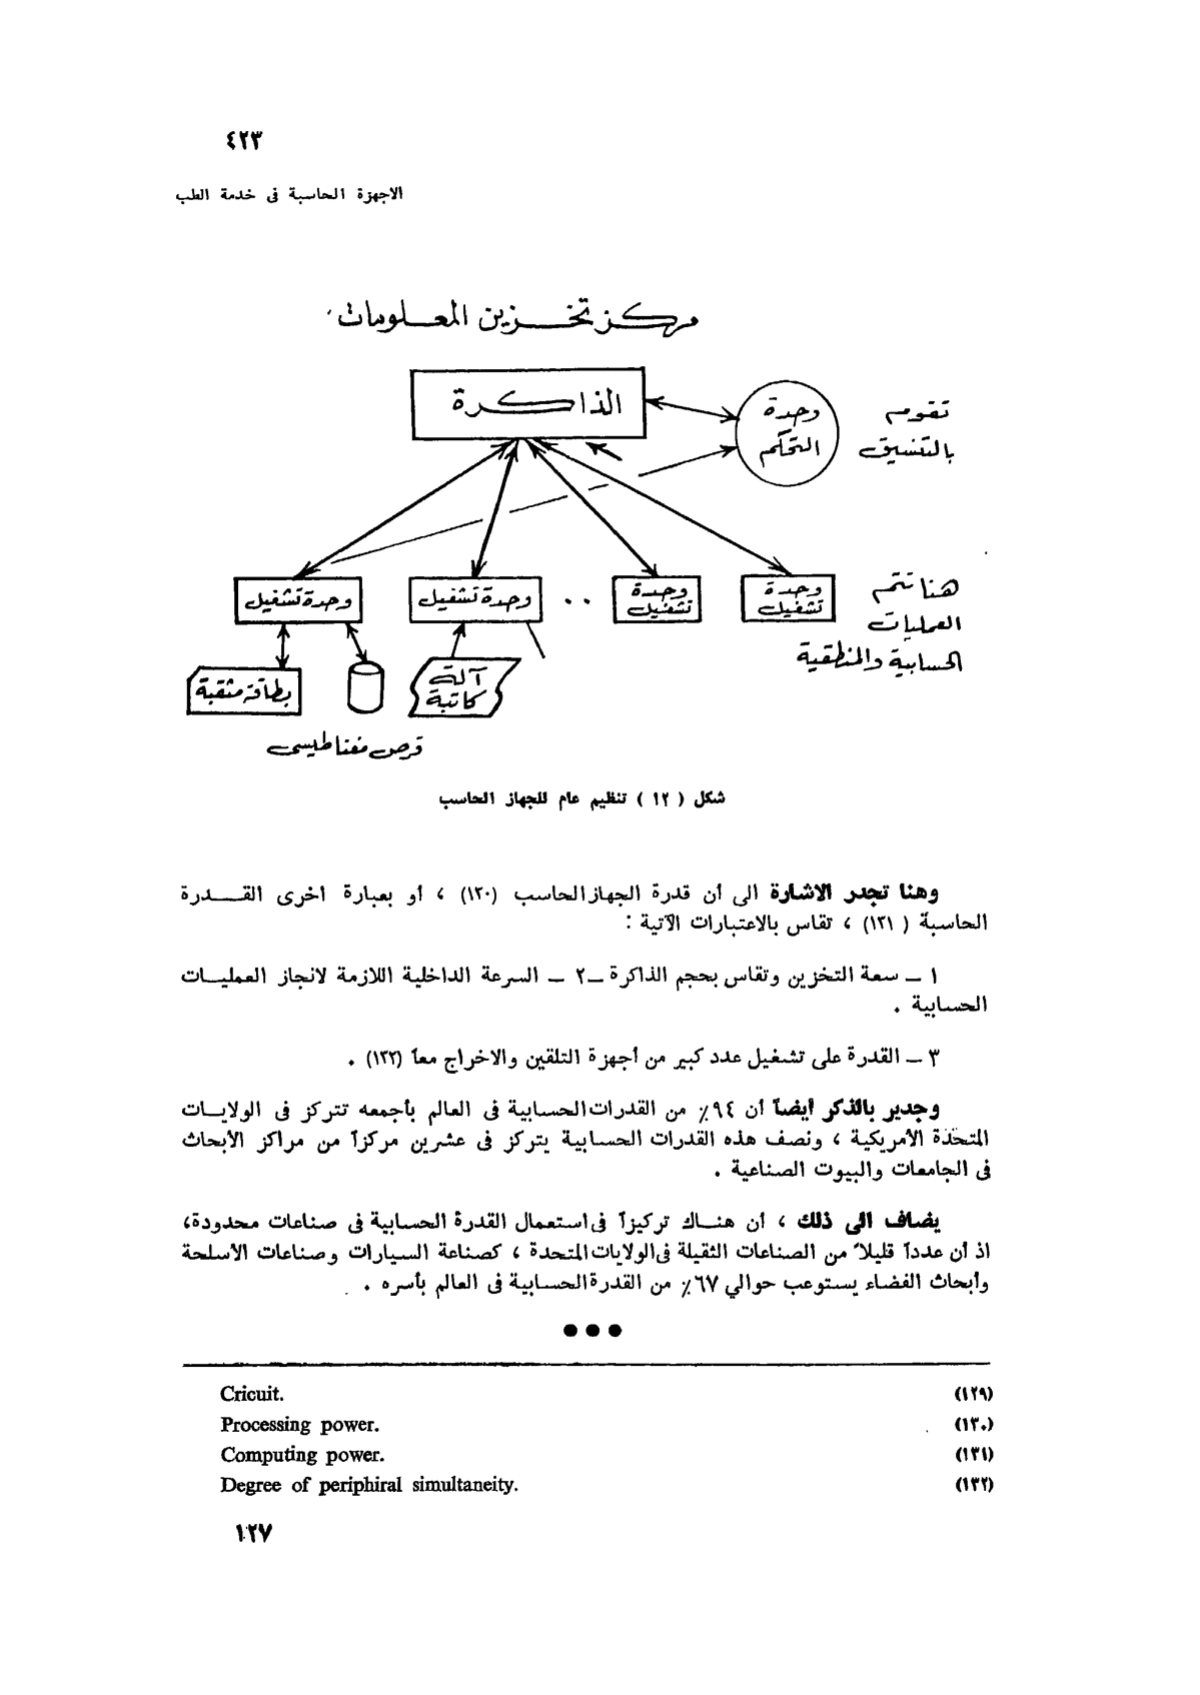 ٤٢٣
الاجهزة الحاسبة فى خدمة الطب
مركز تخزين المعلومات
الذاكرة
وحدة
التحكم
تقوم
بالتنسيق
وحدة تشغيل
وحدة تشغيل
..
وحدة
تشغيل
وحدة
تشغيل
هنا تتم
العمليات
الحسابية والمنطقية
بطاقة مثقبة
آلة
كاتبة
قرص مغناطيسى
شكل ( ١٢ ) تنظيم عام للجهاز الحاسب
وهنا تجدر الاشارة الى أن قدرة الجهاز الحاسب (١٣٠) ، أو بعبارة اخرى القــدرة
الحاسبة ( ١٣١) ، تقاس بالاعتبارات الآتية :
١ ــ سعة التخزين وتقاس بحجم الذاكرة ــ٢ ــ السرعة الداخلية اللازمة لانجاز العمليــات
الحسابية .
٣ ــ القدرة على تشغيل عدد كبير من أجهزة التلقين والاخراج معاً (١٣٢) .
وجدير بالذكر أيضاً أن ٩٤٪ من القدرات الحسابية فى العالم بأجمعه تتركز فى الولايــات
المتحدة الأمريكية ، ونصف هذه القدرات الحسابية يتركز فى عشرين مركزاً من مراكز الأبحاث
فى الجامعات والبيوت الصناعية .
يضاف الى ذلك ، أن هنــاك تركيزاً فى استعمال القدرة الحسابية فى صناعات محدودة،
اذ أن عدداً قليلاً من الصناعات الثقيلة فى الولايات المتحدة ، كصناعة السيارات وصناعات الاسلحة
وأبحاث الفضاء يستوعب حوالي ٦٧٪ من القدرة الحسابية فى العالم بأسره .
●●●
Cricuit. (١٢٩)
Processing power. (١٣٠)
Computing power. (١٣١)
Degree of periphiral simultaneity. (١٣٢)
١٢٧